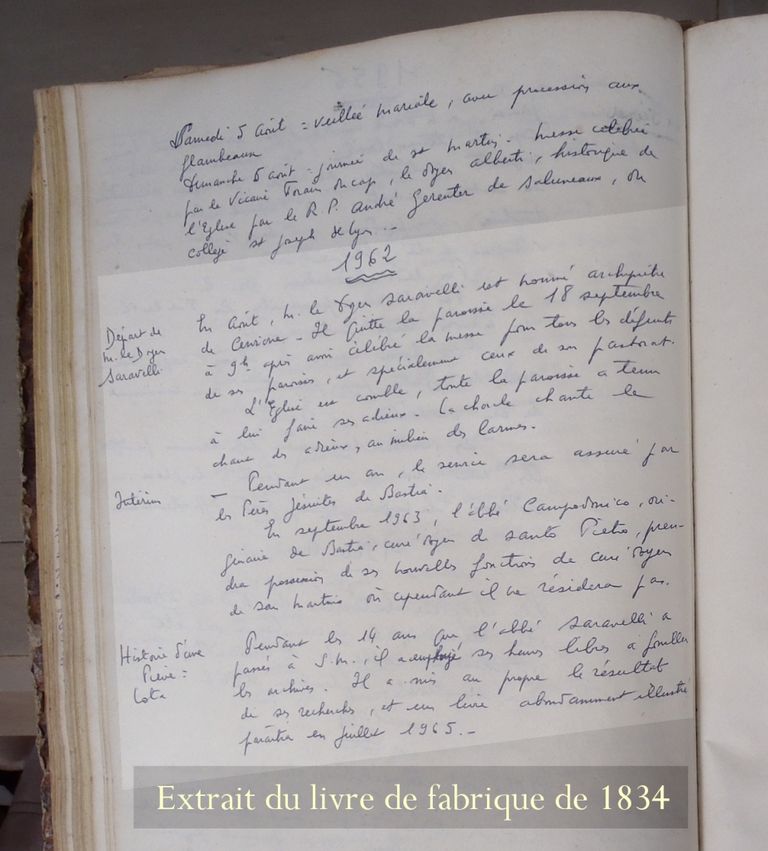 Samedi 5 Août = veillée mariale, avec procession aux
flambeaux
Dimanche 6 Août - journée de St Martin - Messe célébrée
par le Vicaire Forain du cap, le doyen Alberti, historique de
l'Eglise par le R.P. André Gerenter de, ou
collège St Joseph de Lyon. -
1962
Départ de
M. le Doyen
Saravelli
En Août, M. le Doyen Saravelli est nommé archiprêtre
de Cervione - Il quitte la paroisse le 18 septembre
à 9h après avoir célébré la messe pour tous les défunts
de ses paroisses, et spécialement ceux de son pastorat.
L'Eglise est comble, toute la paroisse a tenu
à lui faire ses adieux. La chorale chante le
chant des adieux, au milieu des larmes.
Intérim
- Pendant un an, le service sera assuré par
les Pères Jésuites de Bastia.
En septembre 1963, l'abbé Campodonico, ori-
ginaire de Bastia, curé doyen de Santo Pietro, pren-
dra possession de ses nouvelles fonctions de curé doyen
de San Martino où cependant il ne résidera pas.
Histoire d'une
Pieve :
Lota
Pendant les 14 ans que l'abbé Saravelli a
passés à S.M., il a employé ses heures libres à fouiller
les archives. Il a mis au propre le résultat
de ses recherches, et un livre abondamment illustré
paraîtra en Juillet 1965. -
Extrait du livre de fabrique de 1834